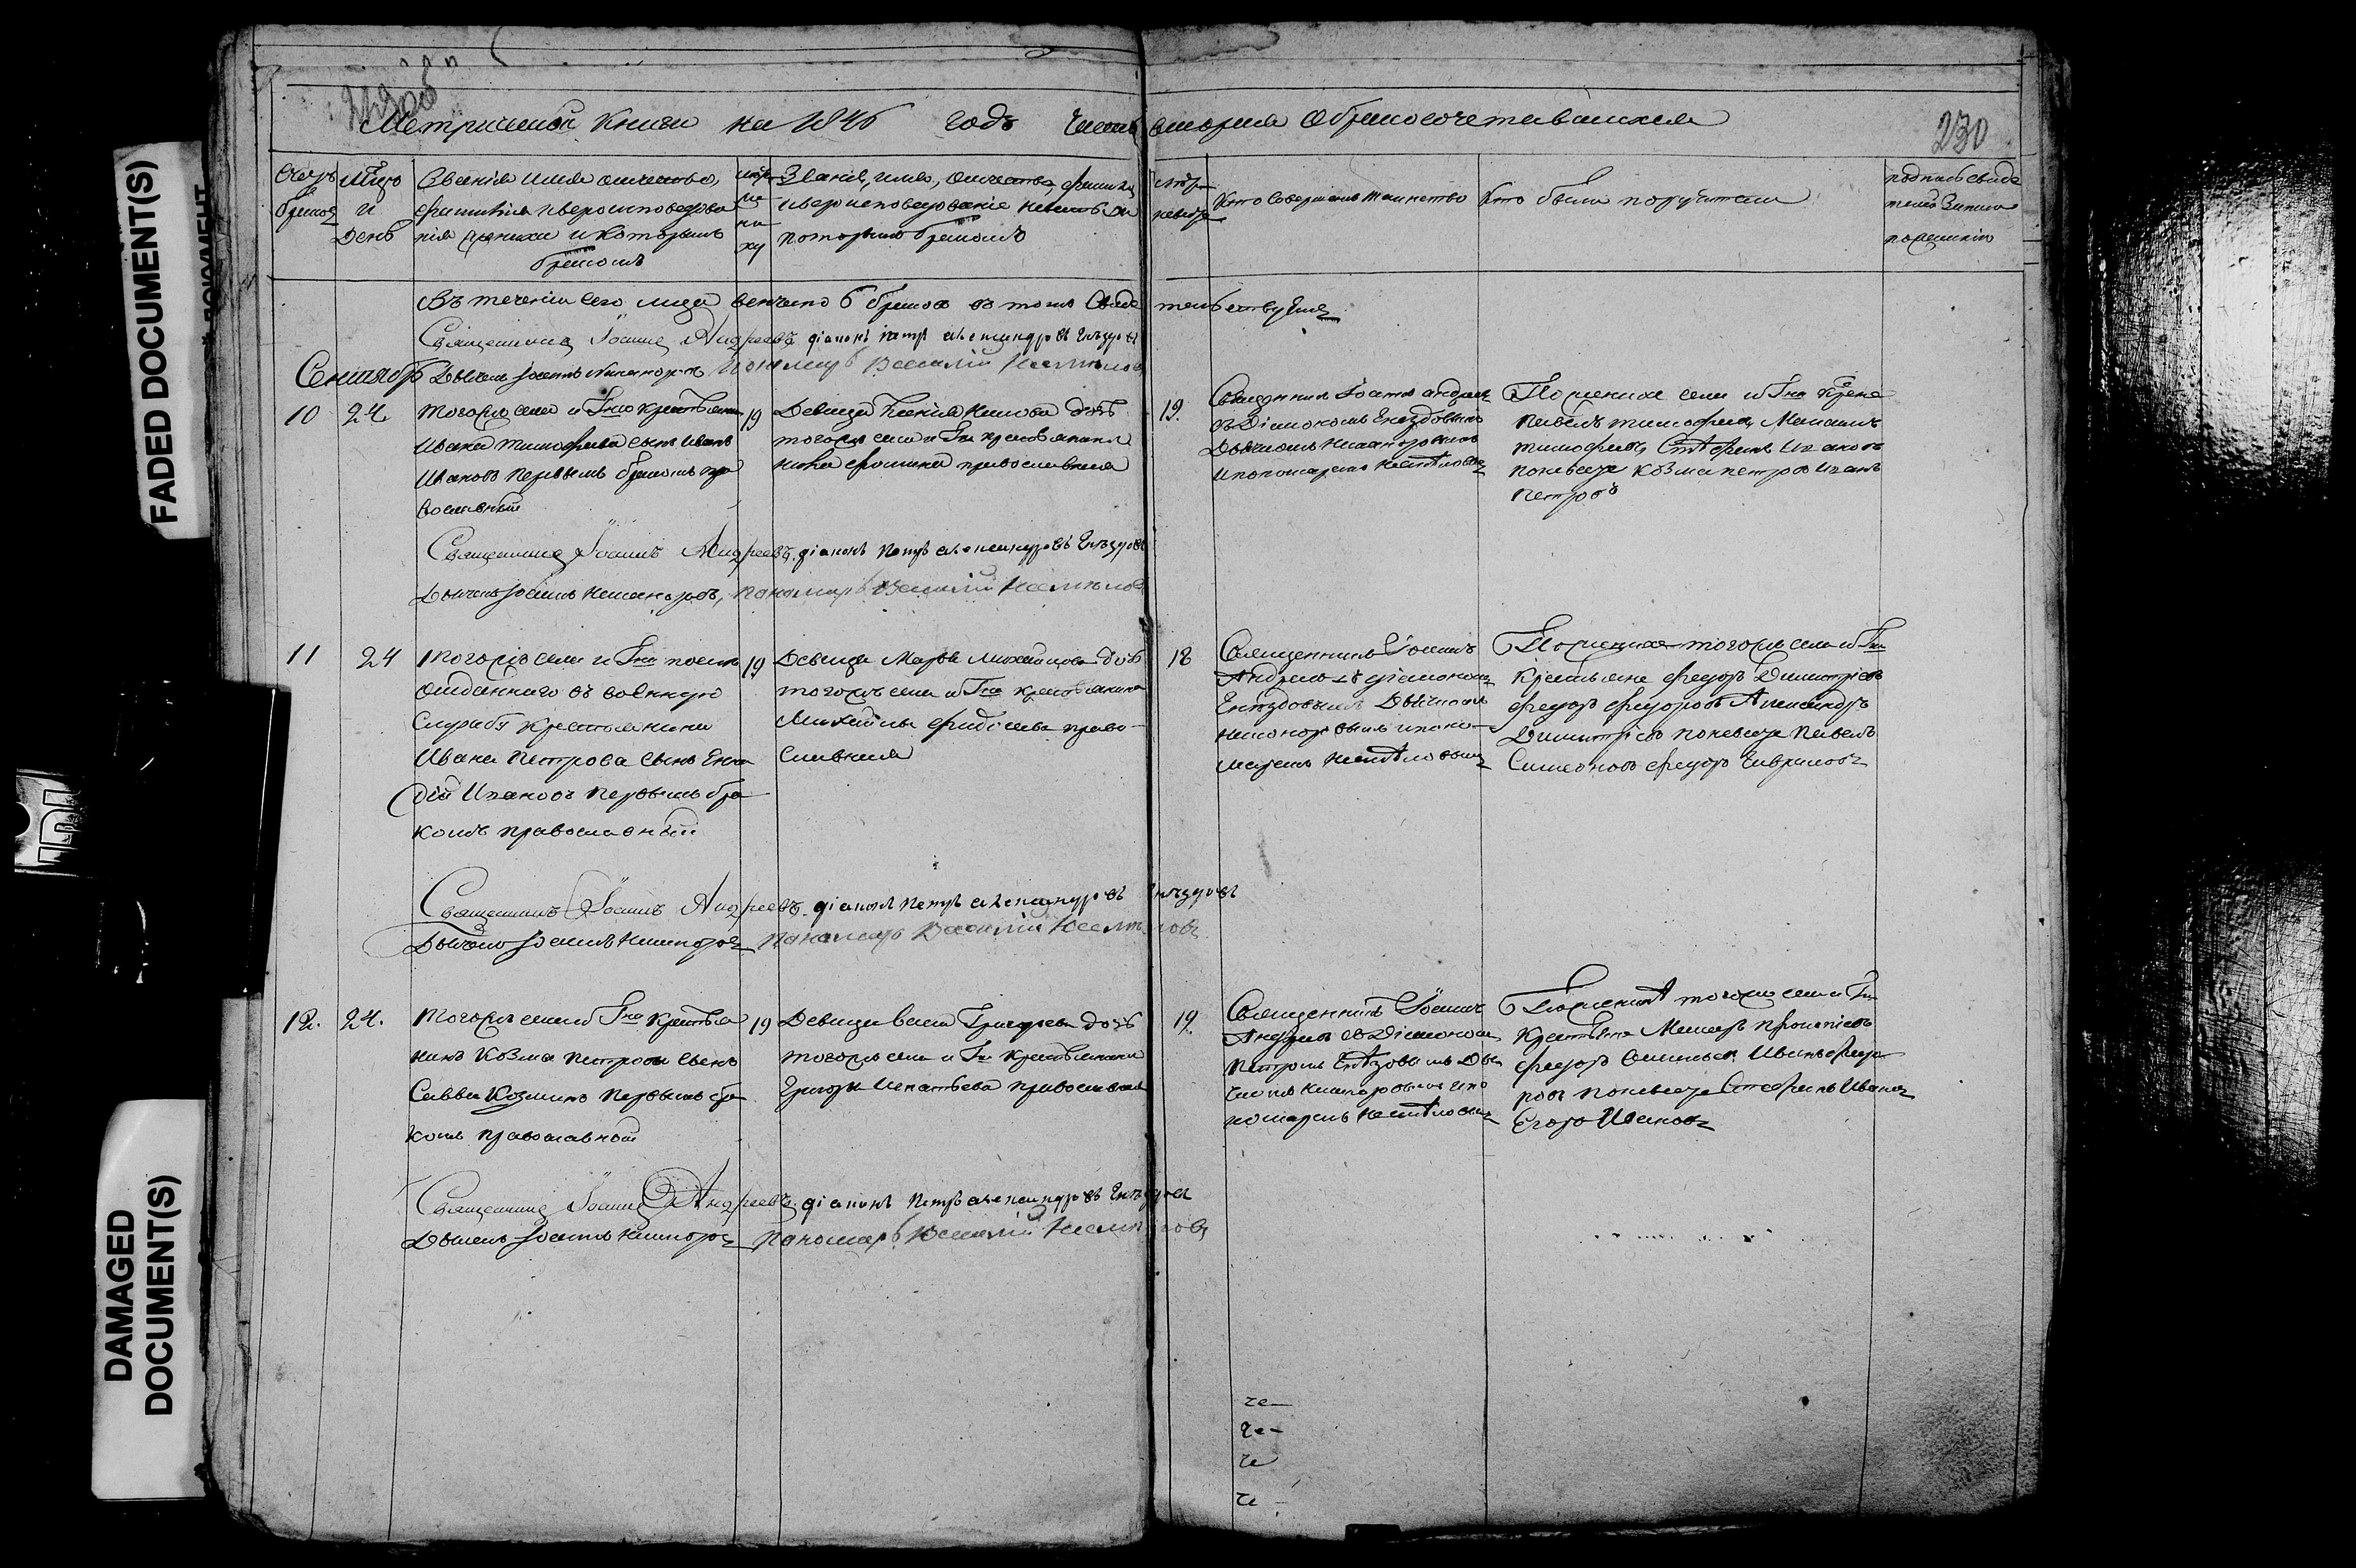 FADED DOCUMENT(S)
DAMAGED
DOCUMENT(S)
Метрической книги на 1846 годъ часть вторая о бракосочетавшихся
230
Счетъ
браковъ
Мѣсяцъ
и
День
Званія имя отчество,
фамилія и вероисповедова
нія жениха и которымъ
бракомъ
Званіе, имя, отчество, фамилія
и вероисповедованіе невесты и
которымъ бракомъ
лѣта
невѣсты
Кто Совершалъ таинство
Кто были поручители
подпись свиде
телей записи
по желанію
Въ теченіи сего мѣсяца венчано 6 браковъ въ томъ Свидетельствуемъ
Священникъ Іоаннъ Андреевъ діаконъ Петръ Александровъ Гнѣздовъ
Сентябрь Дьячекъ Іоаннъ Никаноровъ Пономарь Василій
10 24
Тогожъ села и Гна крестьянина
Ивана Тимофеева сынъ Иванъ
Ивановъ первымъ бракомъ пра
вославный
19
Девица Ксенія Никова дочь
тогожъ села и Гна крестьянина
Ника Фомина православная
19.
Священникъ Іоаннъ Андреев
съ Діакономъ Гнѣздовымъ
Дьячкомъ Никаноровымъ
и пономаремъ
По женихе села и Гна Кресте
Павелъ Тимофеевъ Михаилъ
Тимофеевъ Стефанъ Ивановъ
по невесте Козма Петровъ Иванъ
Петровъ
Священникъ Іоаннъ Андреевъ діаконъ Петръ Александровъ Гнѣздовъ
Дьячекъ Іоаннъ Никаноровъ, пономарь Василій
11 24
Тогожъ села и Гна
отданнаго въ военную
службу крестьянина
Ивана Петрова сынъ Генна
дій Ивановъ первымъ бра
комъ православный
19
Девица Марфа Михайлова дочь
тогожъ села и Гна крестьянина
Михайлы Фадеева право
славная
18
Священникъ Іоаннъ
Андреевъ съ діакономъ
Гнѣздовымъ Дьячкомъ
Никаноровымъ и поно
маремъ
По женихе тогожъ села и Гна
Крестьяне Федоръ Димитріевъ
Федоръ Федоровъ Александръ
Димитріевъ по невесте Павелъ
Симеоновъ Федоръ Гавриловъ
Священникъ Іоаннъ Андреевъ діаконъ Петръ Александровъ Гнѣздовъ
Дьячекъ Іоаннъ Никаноровъ Пономарь Василій
12. 24.
Тогожъ села и Гна Крестья
нина Козма Петрова сынъ
Савва Козминъ первымъ бра
комъ православной
19
Девица Васа Григорева дочь
тогожъ села и Гна Крестьянина
Григорья Игнатьева православная
19.
Священникъ Іоаннъ
Андреевъ съ Діакономъ
Петромъ Гнѣздовымъ Дья
чкомъ Никаноровымъ и по
номаремъ
По женихѣ тогожъ села и Гна
Крестьяне Макаръ Прокопіевъ
Федоръ Иванъ Федо
ровъ по невесте Стефанъ Ивановъ
Егоръ Ивановъ
Священникъ Іоаннъ Андреевъ діаконъ Петръ Александровъ Гнѣздовъ
Дьячекъ Іоаннъ Никаноровъ Пономарь Василій